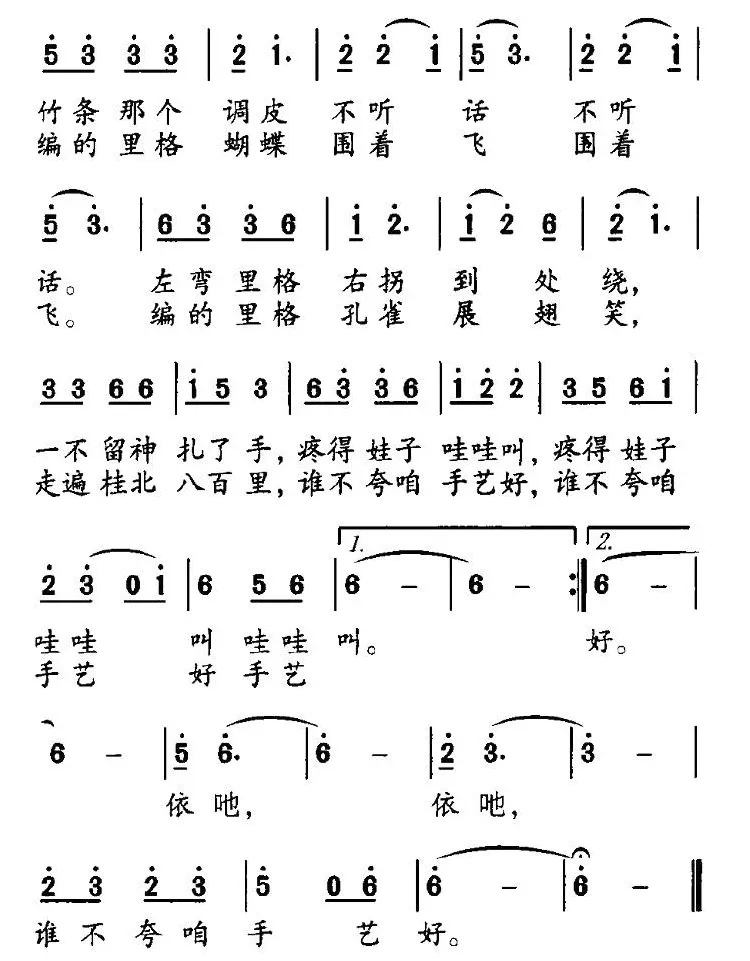 5 3 3 3 | 2 1. | 2 2 1 | 5 3. | 2 2 1 |
竹条那个 调皮 不听 话 不听
编的里格 蝴蝶 围着 飞 围着
5 3. | 6 3 3 6 | 1 2. | 1 2 6 | 2 1. |
话。 左弯里格 右拐 到处 绕，
飞。 编的里格 孔雀 展翅 笑，
3 3 6 6 | 1 5 3 | 6 3 3 6 | 1 2 2 | 3 5 6 1 |
一不留神 扎了手，疼得娃子 哇哇叫，疼得娃子
走遍桂北 八百里，谁不夸咱 手艺好，谁不夸咱
1. 2.
2 3 0 1 | 6 5 6 | 6 - | 6 - :| 6 - |
哇哇 叫 哇哇 叫。 好。
手艺 好 手艺
6 - | 5 6. | 6 - | 2 3. | 3 - |
依吔， 依吔，
2 3 2 3 | 5 0 6 | 6 - | 6 - ||
谁不夸咱 手 艺 好。